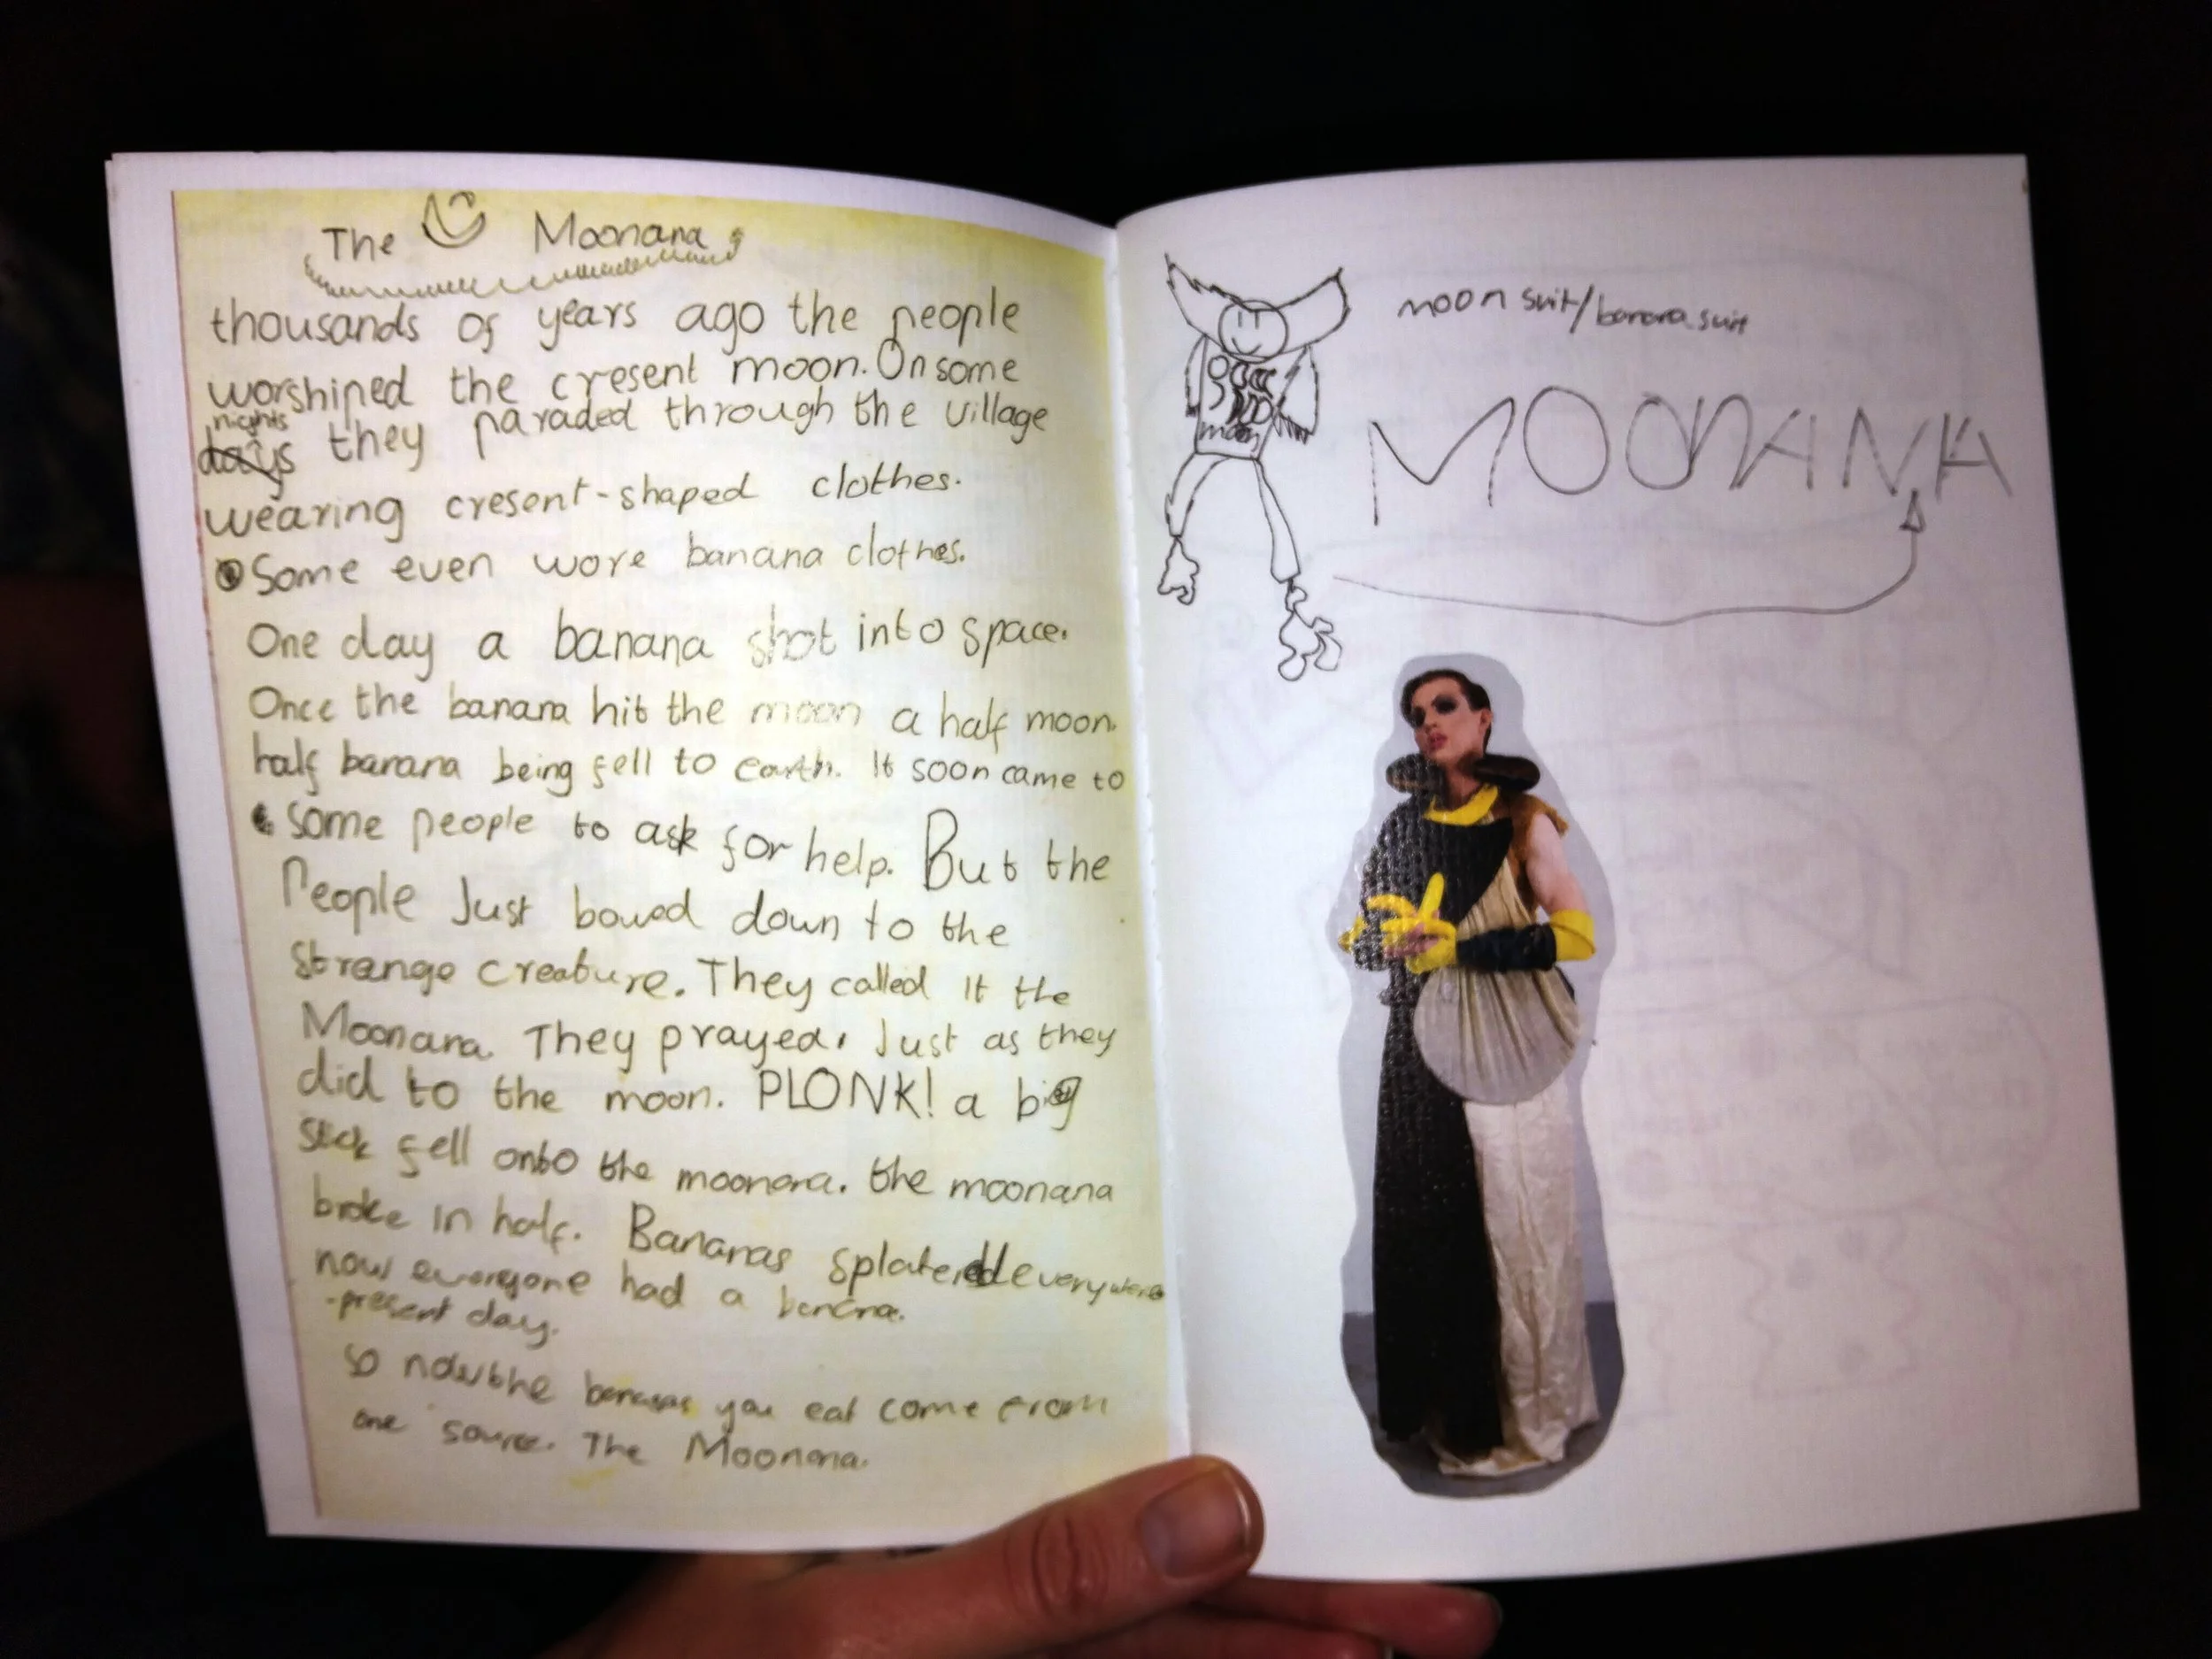 The Moonana
thousands of years ago the people
worshiped the cresent moon. On some
nights
days they paraded through the village
wearing cresent-shaped clothes.
Some even wore banana clothes.
One day a banana shot into space.
Once the banana hit the moon a half moon
half banana being fell to earth. It soon came to
some people to ask for help. But the
People Just bowed down to the
strange creature. They called it the
Moonana. They prayed. Just as they
did to the moon. PLONK! a big
stick fell onto the moonana. the moonana
broke in half. Bananas splatered everywere
now everyone had a banana.
-present day.
so now the bananas you eat come from
one source. The Moonana.
moon suit/banana suit
MOONANA
moon